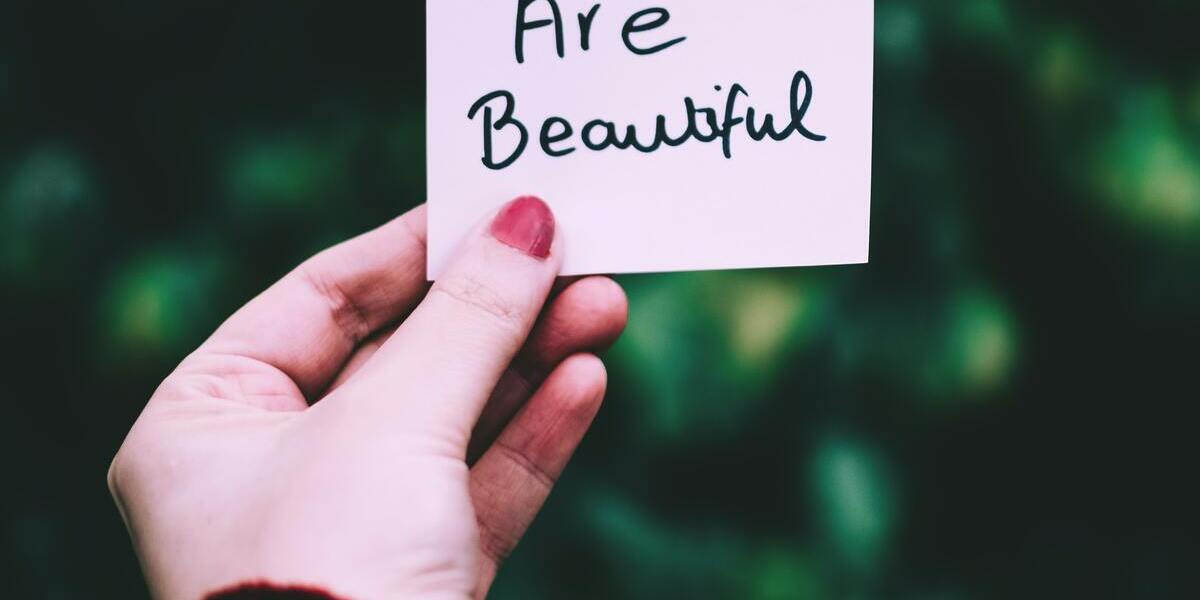 Are
Beautiful